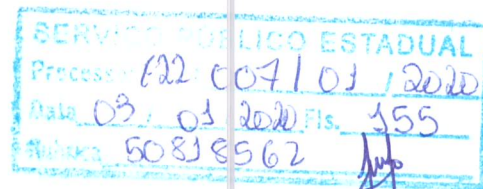 SERVIÇO PÚBLICO ESTADUAL
Processo 007/01/2020
Data 03/01/2020 Fls. 155
50818562